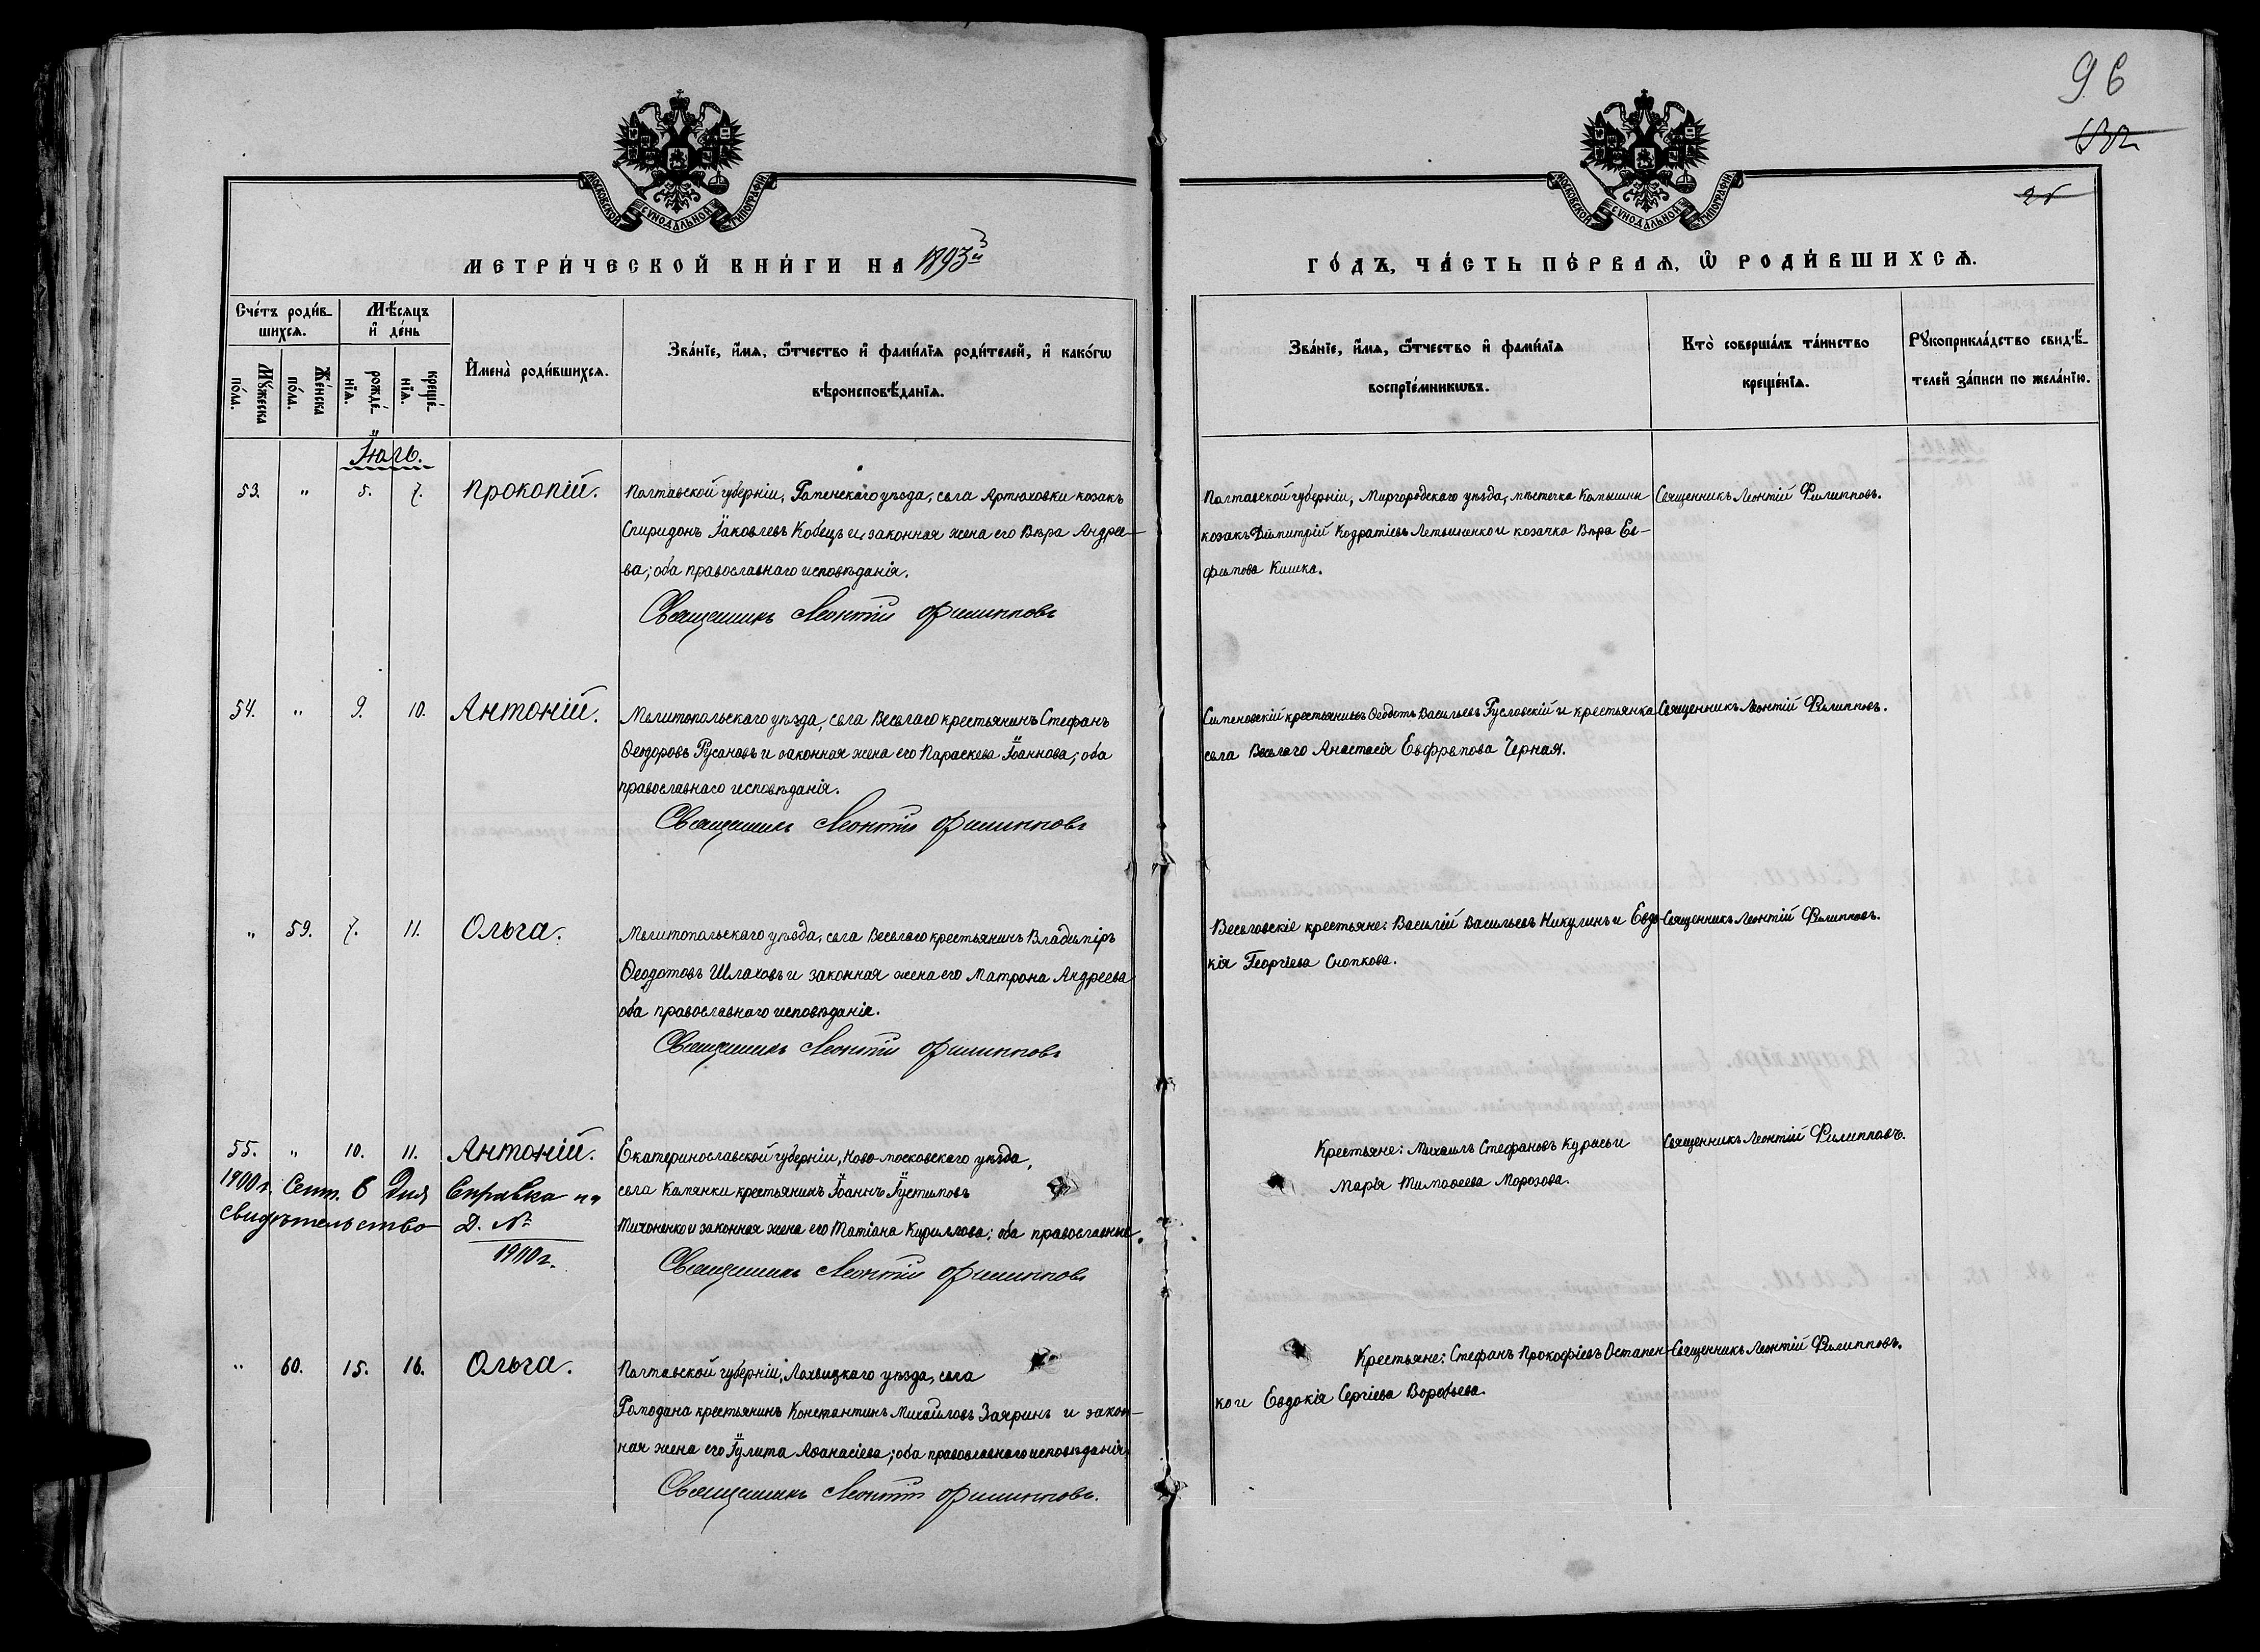 96
132
МОСКОВСКОЙ СУНОДАЛЬНОЙ ТИПОГРАФІИ
МОСКОВСКОЙ СУНОДАЛЬНОЙ ТИПОГРАФІИ
МЕТРИ́ЧЕСКОЙ КНИ́ГИ НА 1893й
ГО́ДЪ, ЧА́СТЬ ПЕ́РВАѦ, Ѡ РОДИ́ВШИХСѦ.
Сче́тъ роди́вшихся.
Мꙋ́жеска по́ла.
Же́нска по́ла.
Мѣ́сяцъ и де́нь
рожде́нїя.
креще́нїя.
Имена̀ роди́вшихся.
Зва́нїе, и́мя, ѻ́тчество и фами́лїя роди́телей, и како́гѡ
вѣроисповѣ́данїя.
Зва́нїе, и́мя, ѻ́тчество и фами́лїя
воспрїе́мникѡвъ.
Кто̀ соверша́лъ та́инство
креще́нїя.
Рꙋкоприкла́дство свидѣ́-
телей за́писи по жела́нїю.
Іюль.
53. " 5. 7. Прокопій.
Полтавской губерніи, Роменскаго уѣзда, села Артюховки козакъ
Спиридонъ Іаковлевъ Кобецъ и законная жена его Вѣра Андрее-
ва; оба православнаго исповѣданія.
Священникъ Леонтій Филипповъ
Полтавской губерніи, Миргородскаго уѣзда, мѣстечка Камышни
козакъ Димитрій Кодратіевъ Литвиненко и козачка Вѣра Ев-
фимова Кишка.
Священникъ Леонтій Филипповъ.
54. " 9. 10. Антоній.
Мелитопольскаго уѣзда, села Веселаго крестьянинъ Стефанъ
Ѳеодоровъ Русановъ и законная жена его Параскева Іоаннова; оба
православнаго исповѣданія.
Священникъ Леонтій Филипповъ
крестьянинъ Ѳеодотъ Васильевъ Русловскій и крестьянка
села Веселаго Анастасія Евфремова Черная.
Священникъ Леонтій Филипповъ.
" 59. 7. 11. Ольга.
Мелитопольскаго уѣзда, села Веселаго крестьянинъ Владиміръ
Ѳеодотовъ Шлаховъ и законная жена его Матрона Андреева
оба православнаго исповѣданія.
Священникъ Леонтій Филипповъ
Веселовскіе крестьяне: Василій Васильевъ Никулинъ и Евдо-
кія Георгіева Снопкова.
Священникъ Леонтій Филипповъ.
55. " 10. 11. Антоній.
1900 г. Сент. 6 дня Справка на
свидѣтельство Д. №
1910 г.
Екатеринославской губерніи, Ново-московскаго уѣзда,
села Каменки крестьянинъ Іоаннъ Іустиновъ
Тихоненко и законная жена его Татіана Кириллова; оба православные.
Священникъ Леонтій Филипповъ
Крестьяне: Михаилъ Стефановъ Курась и
Марія Тимоѳеева Морозова.
Священникъ Леонтій Филипповъ.
" 60. 15. 16. Ольга.
Полтавской губерніи, Лохвицкаго уѣзда, села
Ромодана крестьянинъ Константинъ Михайловъ Заяринъ и закон-
ная жена его Іулита Аѳанасіева; оба православнаго исповѣданія.
Священникъ Леонтій Филипповъ.
Крестьяне: Стефанъ Прокофіевъ Остапен-
ко и Евдокія Сергіева Воробьева.
Священникъ Леонтій Филипповъ.